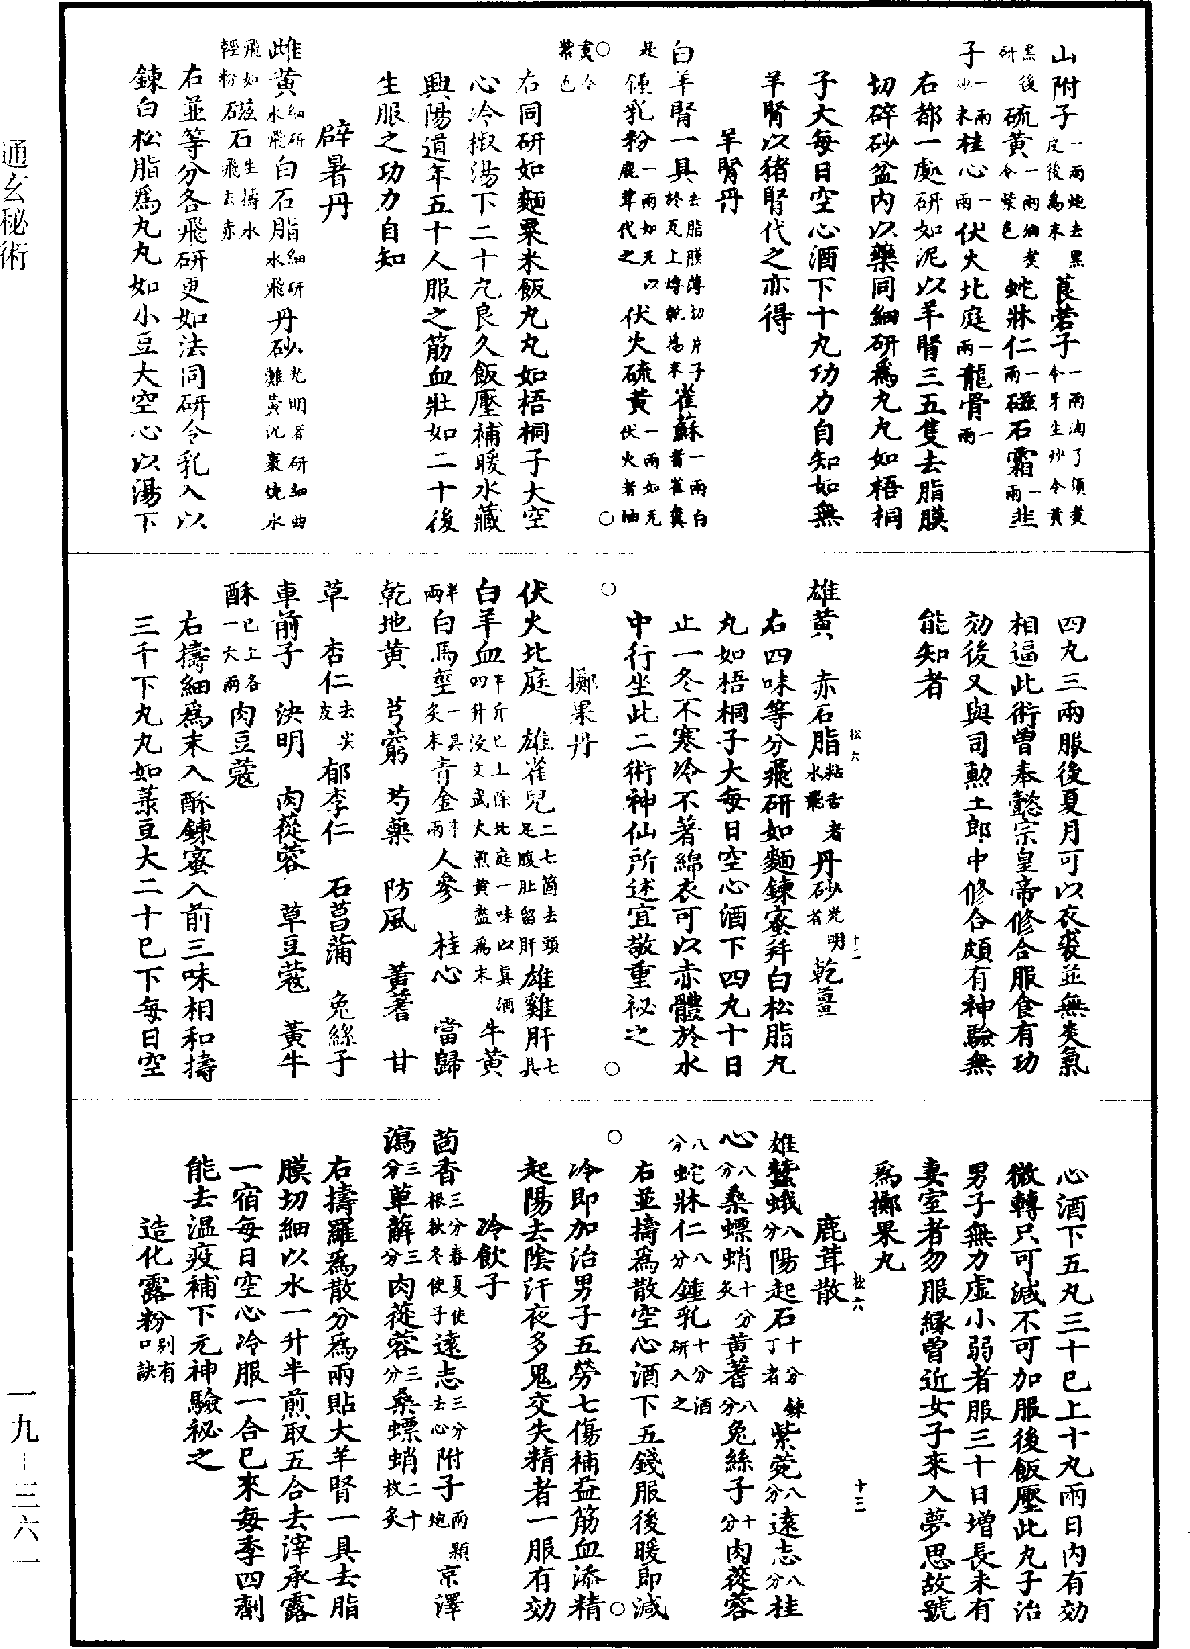 山附子一兩炮去黑皮後爲末莨菪子一兩淘了須煑令芽生炒令黄
黑後研硫黄一兩細煑令紫色蛇牀仁一兩磁石霜一兩韭
子一兩炒末桂心一兩伏火北庭一兩龍骨一兩
右都一處研如泥以羊腎三五隻去脂膜
切碎砂盆內以藥同細研爲丸丸如梧桐
子大每日空心酒下十丸功力自知如無
羊腎以猪腎代之亦得
羊腎丹
白羊腎一具去脂膜薄切片子於瓦上煿乾爲末雀蘇一兩白者雀糞
是鍾乳粉一兩如无以鹿茸代之伏火硫黄一兩如无伏火者油
煑令紫色
右同研如麵粟米飯丸丸如梧桐子大空
心冷椒湯下二十丸良久飯壓補暖水藏
興陽道年五十人服之筋血壯如二十後
生服之功力自知
辟暑丹
雌黄細研水飛白石脂細研水飛丹砂光明者研細曲灘黄泥裹燒水
飛如輕粉磁石生擣水飛去赤
右並等分各飛研更如法同研令乳入以
鍊白松脂爲丸丸如小豆大空心以湯下
四丸三兩服後夏月可以衣裘並無炎氣
相逼此術曾奉懿宗皇帝修合服食有功
効後又與司勲王郎中修合頗有神驗無
能知者
松六
十二
雄黄 赤石脂粘舌者水飛丹砂光明者乾薑
右四味等分飛研如麵鍊蜜拌白松脂丸
丸如梧桐子大每日空心酒下四丸十日
止一冬不寒冷不著綿衣可以赤體於水
中行坐此二術神仙所述宜敬重祕之
擲果丹
伏火北庭 雄雀兒二七箇去頭足腹肚留肝雄雞肝七具
白羊血半斤已上除北庭一味以真酒四升浸文武火煎黄盡爲末牛黄
半兩白馬莖一具炙末青金半兩人參 桂心 當歸
乾地黄 芎藭 芍藥 防風 黄蓍 甘
草 杏仁去尖皮郁李仁 石菖蒲 兔絲子
車前子 決明 肉蓯蓉 草豆蔻 黄牛
酥已上各一大兩肉豆蔻
右擣細爲末入酥鍊蜜入前三味相和擣
三千下丸丸如菉豆大二十已下每日空
心酒下五丸三十已上十丸兩日內有効
微轉只可減不可加服後飯壓此丸子治
男子無力虛小弱者服三十日增長未有
妻室者勿服緣曾近女子來入夢思故號
爲擲果丸
松六
十三
鹿茸散
雄蠶蛾八分陽起石十分鍊丁者紫菀八分遠志八分桂
心八分桑螵蛸十分炙黄蓍八分兔絲子十分肉蓯蓉
八分蛇牀仁八分鍾乳十分酒研入之
右並擣爲散空心酒下五錢服後暖即減
冷即加治男子五勞七傷補益筋血添精
起陽去陰汗夜多鬼交失精者一服有効
冷飲子
茴香三分春夏使根秋冬使子遠志三分去心附子兩顆炮京澤
瀉三分萆薢三分肉蓯蓉三分桑螵蛸二十枚炙
右擣羅爲散分爲兩貼大羊腎一具去脂
膜切細以水一升半煎取五合去滓承露
一宿每日空心冷服一合已來每季四劑
能去溫疫補下元神驗祕之
造化露粉別有口訣
通玄秘術
一九—三六一